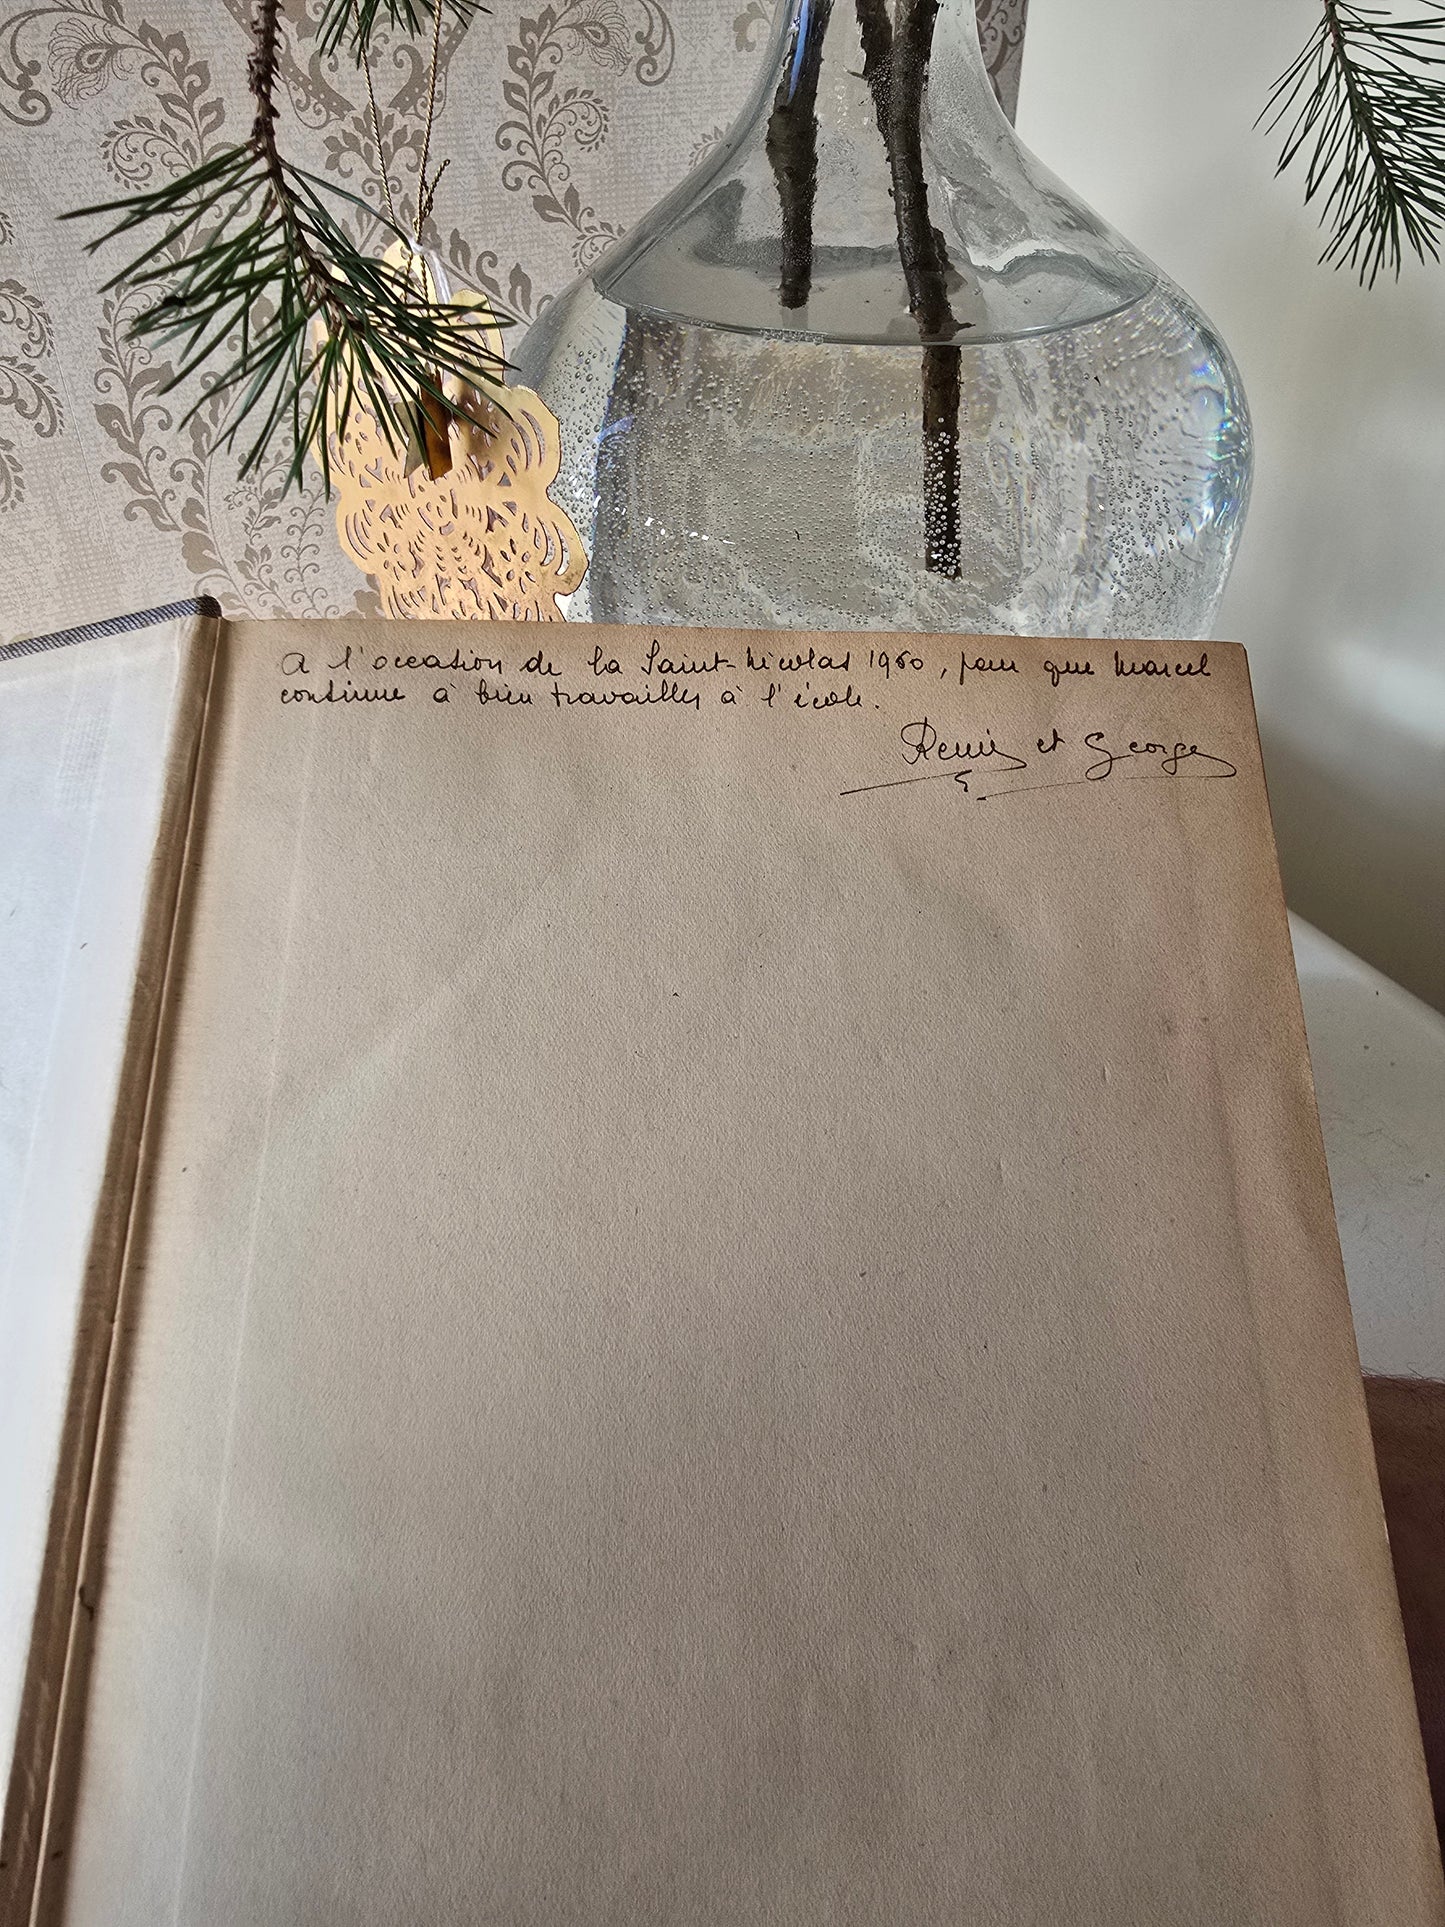 A l'occasion de la Saint-Nicolas 1960, pour que Marcel
continue à bien travailler à l'école.
Remi et Georges